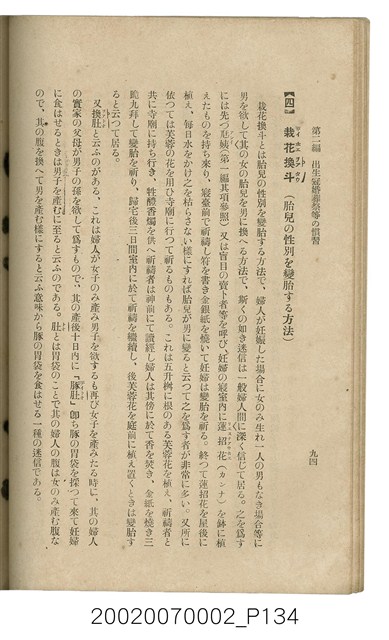 第二編 出生冠婚葬祭等の慣習
九四
【四】 栽花換斗 (胎兒の性別を變胎する方法)
栽花換斗とは胎兒の性別を變胎する方法で、婦人が妊娠した場合に女のみ生れ一人の男もなき場合等に
男を欲して其の女の胎兒を男に換へる方法で、斯くの如き迷信は一般婦人間に深く信じて居る。之を爲す
には先づ尪姨(第一編其項參照)又は盲目の賣卜者等を呼び、妊婦の寢室內に蓮招花(カンナ)を鉢に植
えたものを持ち來り、寢臺前で祈禱し符を書き金銀紙を燒いて妊婦は變胎を祈る。終つて蓮招花を屋後に
植え、每日水をかけ之を枯らさない樣にすれば胎兒が男に變ると云つて之を爲す者が非常に多い。又所に
依つては芙蓉の花を用ひ寺廟に行つて祈るものもある。これは五升桝に根のある芙蓉花を植え、祈禱者と
共に寺廟に持ち行き、牲醴香燭を供へ祈禱者は神前にて讀經し婦人は其傍に於て香を焚き、金紙を燒き三
跪九拜して變胎を祈り、歸宅後三日間室內に於て祈禱を繼續し、後芙蓉花を庭前に植え置くときは變胎す
ると云つて居る。
又換肚と云ふのがある、これは婦人が女子のみ產み男子を欲するも再び女子を產みたる時に、其の婦人
の實家の父母が男子の孫を欲して爲すもので、其の產後十日內に「豚肚」卽ち豚の胃袋を探つて來て妊婦
に食はせるときは男子を產むに至ると云ふのである。肚とは胃袋のことで其の婦人の腹は女のみ產む腹な
ので、其の腹を換へて男を產む樣にすると云ふ意味から豚の胃袋を食はせる一種の迷信である。
20020070002_P134